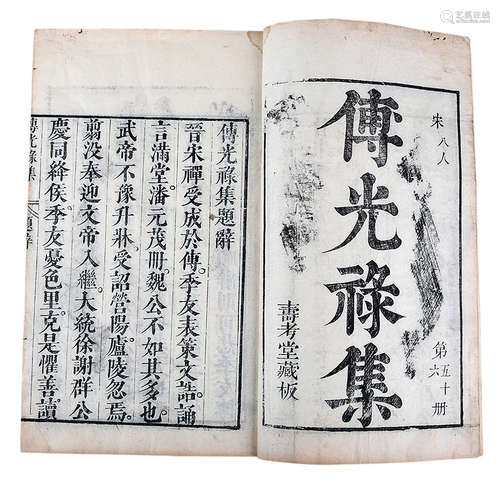 宋八人
傅光祿集
第五十册
六
壽考堂藏板
傅光祿集題辭
晉宋禪受成於傅季友表策文誥。誦
言滿堂潘元茂冊魏公不如其多也。
武帝不豫升牀受詔營陽。廬陵忽焉。
翦没奉迎文帝入繼。大統徐謝群公
慶同絳侯。季友憂色里。克是懼善讀
傅光祿集
題辭